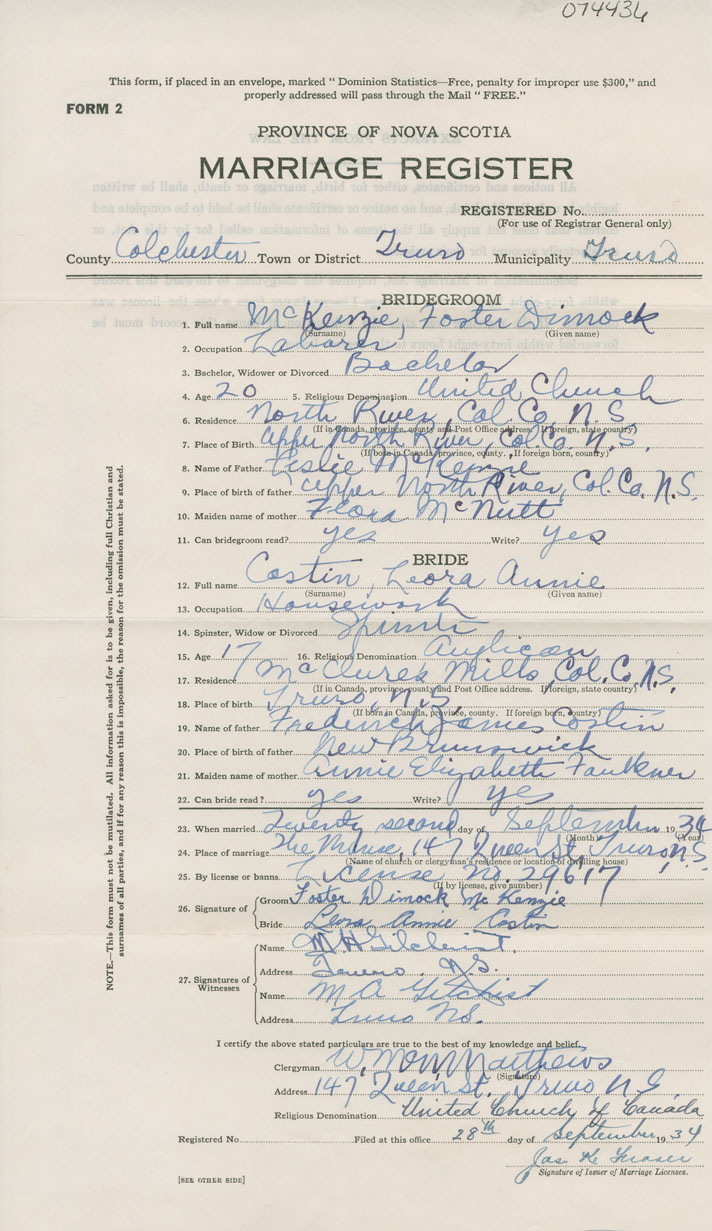 074436
This form, if placed in an envelope, marked " Dominion Statistics—Free, penalty for improper use $300," and
properly addressed will pass through the Mail " FREE."
FORM 2
PROVINCE OF NOVA SCOTIA
MARRIAGE REGISTER
REGISTERED No.
(For use of Registrar General only)
County Colchester Town or District Truro Municipality Truro
BRIDEGROOM
1. Full name McKenzie, Foster Dimock
(Surname) (Given name)
2. Occupation Laborer
3. Bachelor, Widower or Divorced Bachelor
4. Age 20 5. Religious Denomination United Church
6. Residence North River, Col. Co. N.S.
(If in Canada, province, county and Post Office address. If foreign, state country)
7. Place of Birth Upper North River, Col. Co. N.S.
(If born in Canada, province, county. If foreign born, country)
8. Name of Father Leslie McKenzie
9. Place of birth of father Upper North River, Col. Co. N.S.
10. Maiden name of mother Flora McNutt
11. Can bridegroom read? yes Write? yes
BRIDE
12. Full name Costin, Leora Annie
(Surname) (Given name)
13. Occupation Housework
14. Spinster, Widow or Divorced
15. Age 17 16. Religious Denomination Anglican
17. Residence McClure's Mills, Col. Co. N.S.
(If in Canada, province, county and Post Office address. If foreign, state country)
18. Place of birth Truro, N.S.
(If born in Canada, province, county. If foreign born, country)
19. Name of father Frederick James Costin
20. Place of birth of father New Brunswick
21. Maiden name of mother Annie Elizabeth Faulkner
22. Can bride read? yes Write? yes
23. When married Twenty second day of September 1934
(Month) (Year)
24. Place of marriage The Manse, 147 Queen St, Truro, N.S.
(Name of church or clergyman's residence or location of dwelling house)
25. By license or banns License No. 29617
(If by license, give number)
26. Signature of
Groom Foster Dimock McKenzie
Bride Leora Annie Costin
27. Signatures of Witnesses
Name M H Gilchrist
Address Truro. N.S.
Name M A Gilchrist
Address Truro NS.
I certify the above stated particulars are true to the best of my knowledge and belief.
Clergyman Matthews
(Signature)
Address 147 Queen St. Truro N.S.
Religious Denomination United Church of Canada
Registered No. Filed at this office 28th day of September 1934
Jas K Fraser
Signature of Issuer of Marriage Licenses.
[SEE OTHER SIDE]
NOTE.—This form must not be mutilated. All information asked for is to be given, including full Christian and
surnames of all parties, and if for any reason this is impossible, the reason for the omission must be stated.